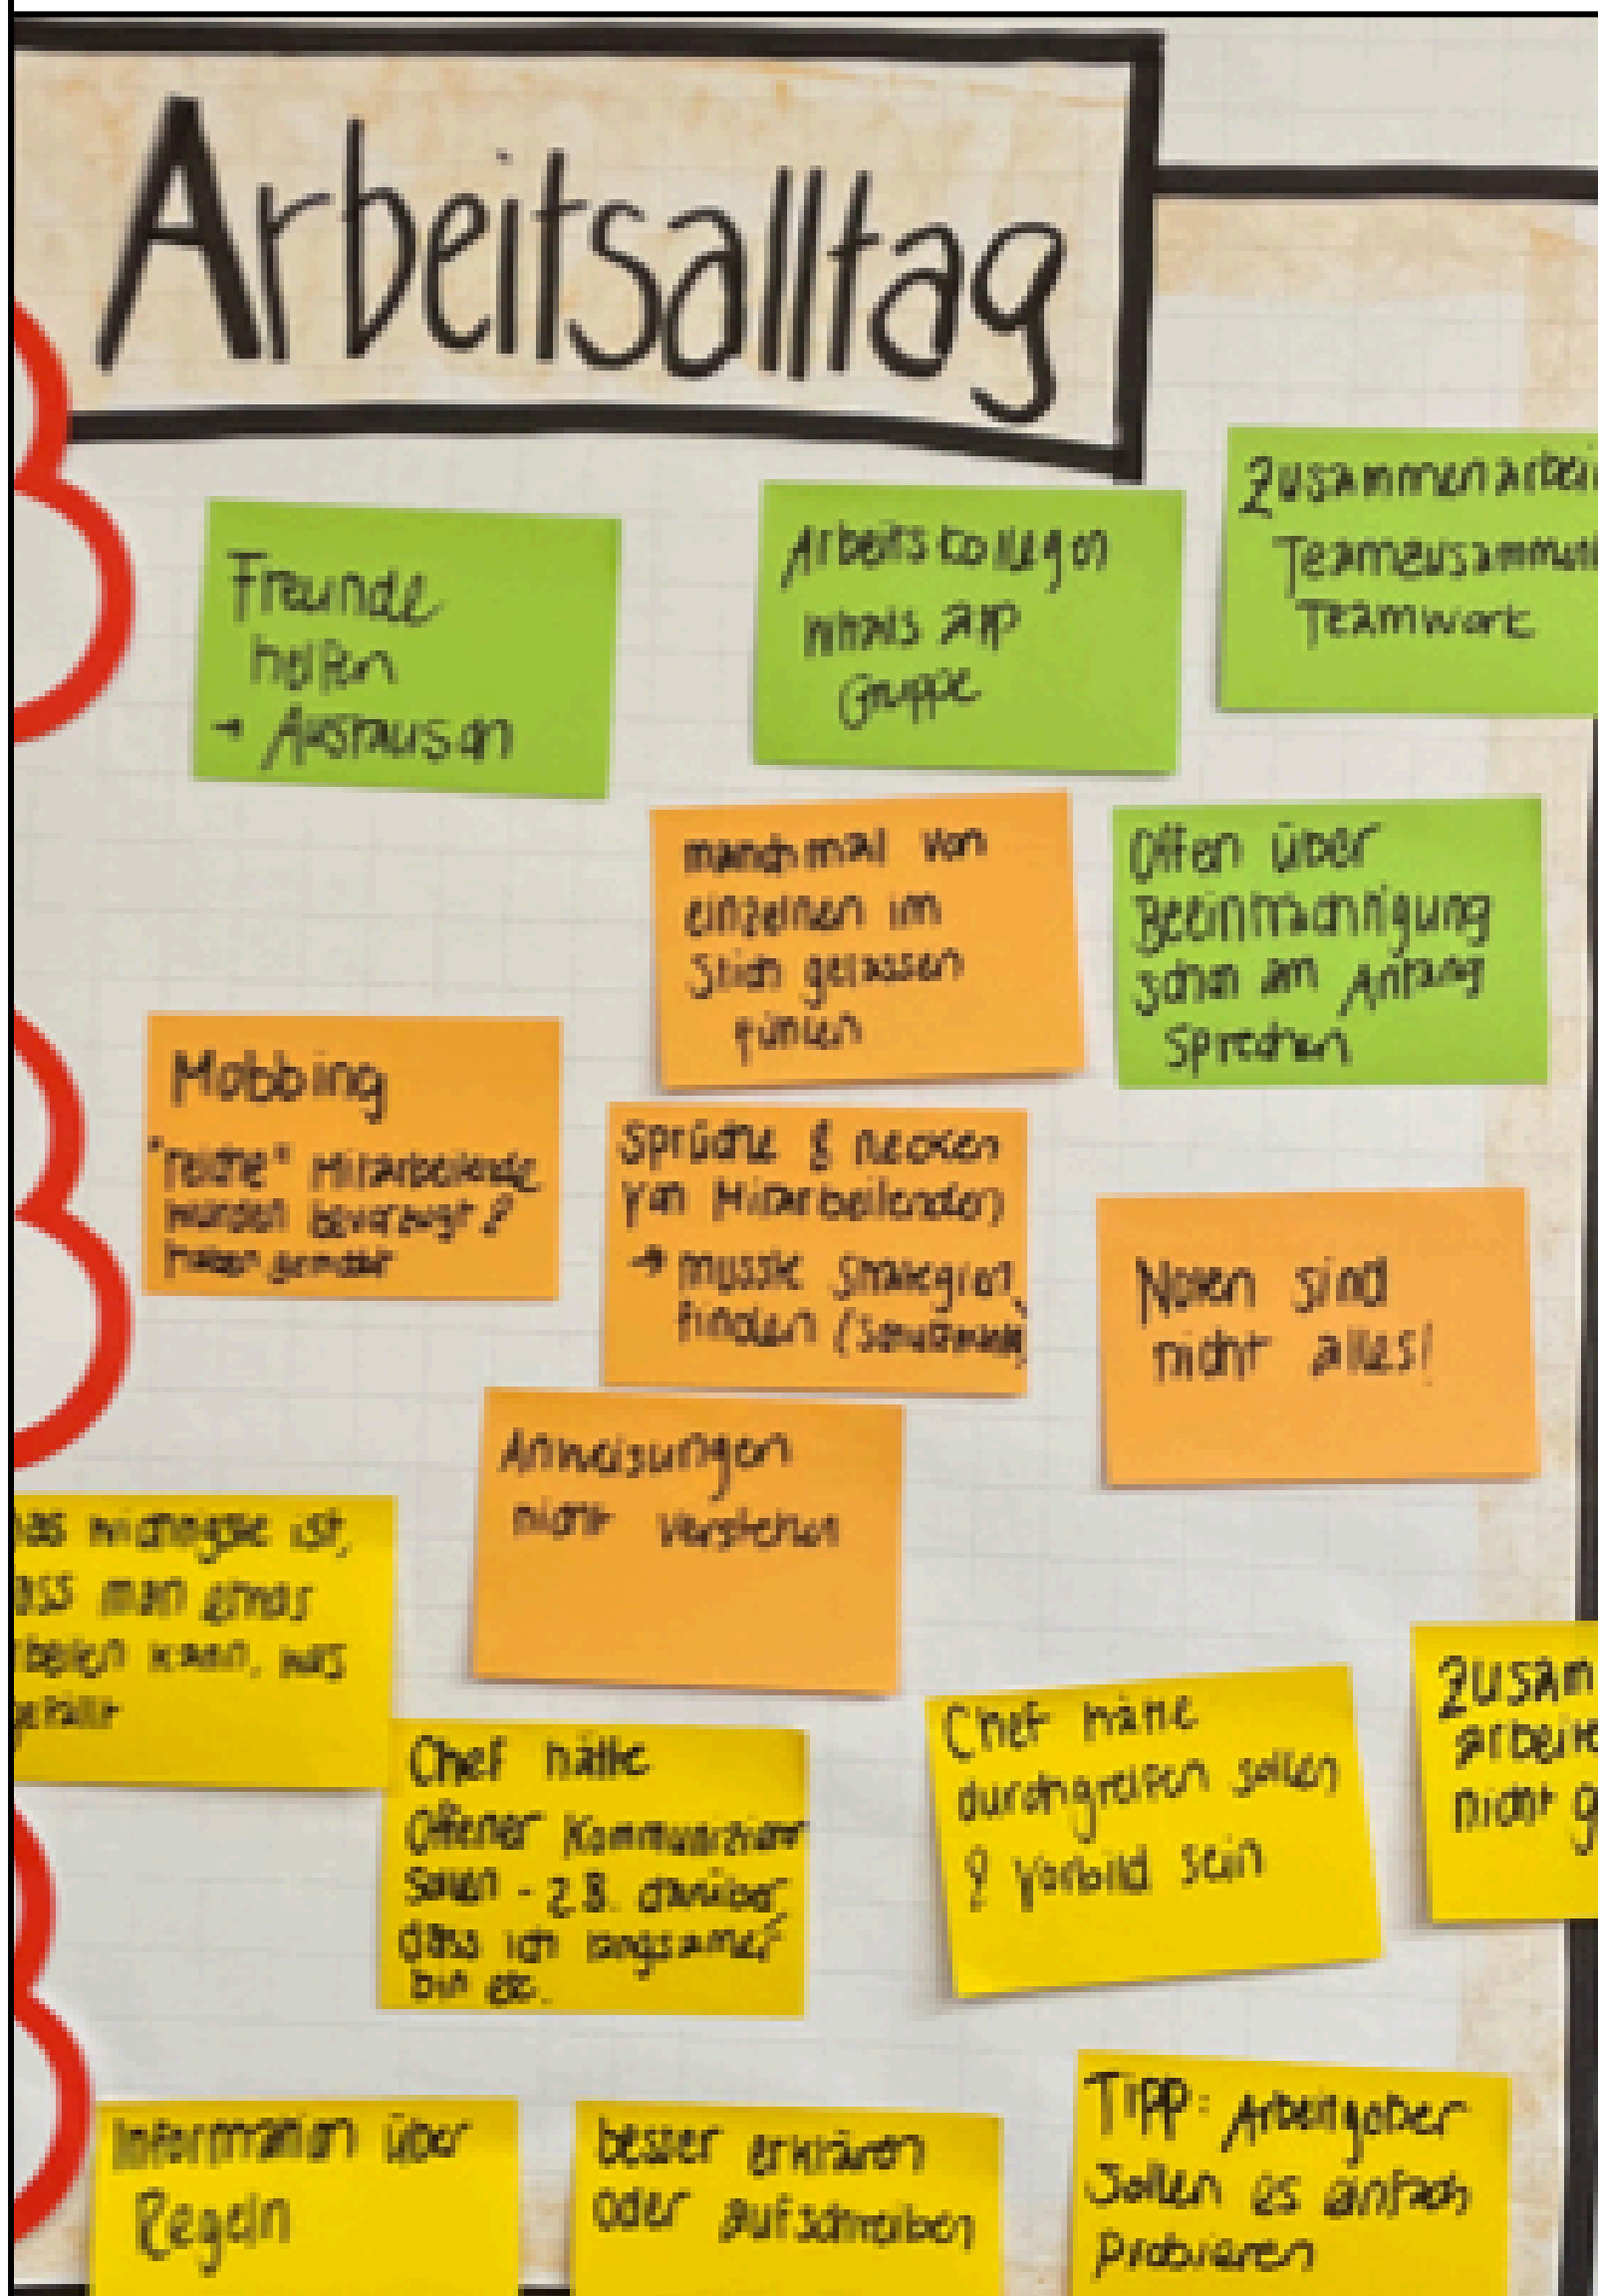 Arbeitsalltag
Freunde
helfen
→ Austausch
Arbeitskollegen
Whats app
Gruppe
Zusammenarbei
Teamzusammen
Teamwork
manchmal von
einzelnen im
Stich gelassen
fühlen
Offen über
Beeinträchtigung
schon am Anfang
Sprechen
Mobbing
"reiche" Mitarbeitende
wurden bevorzugt &
haben gemobbt
Sprüche & necken
von Mitarbeitenden
→ musste Strategien
finden (
Noten sind
nicht alles!
Anweisungen
nicht verstehen
das wichtigste ist,
ass man etwas
rbeiten kann, was
gefällt
Chef hätte
Offener Kommunizieren
sollen - z.B. darüber,
dass ich langsamer
bin etc.
Chef hätte
durchgreifen sollen
& Vorbild sein
Zusam
arbeite
nicht g
Information über
Regeln
besser erklären
oder aufschreiben
Tipp: Arbeitgeber
Sollen es einfach
Probieren